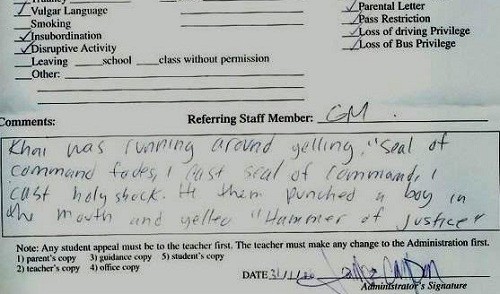 Vulgar Language
Smoking
Insubordination
Disruptive Activity
Leaving school class without permission
Other:
Parental Letter
Pass Restriction
Loss of driving Privilege
Loss of Bus Privilege
Comments:
Referring Staff Member: GM
Khai was running around yelling, "Seal of
command fades, I cast seal of command, I
cast holy shock. He them punched a boy in
the mouth and yelled "Hammer of Justice"
Note: Any student appeal must be to the teacher first. The teacher must make any change to the Administration first.
1) parent's copy 3) guidance copy 5) student's copy
2) teacher's copy 4) office copy
DATE
Administrator's Signature